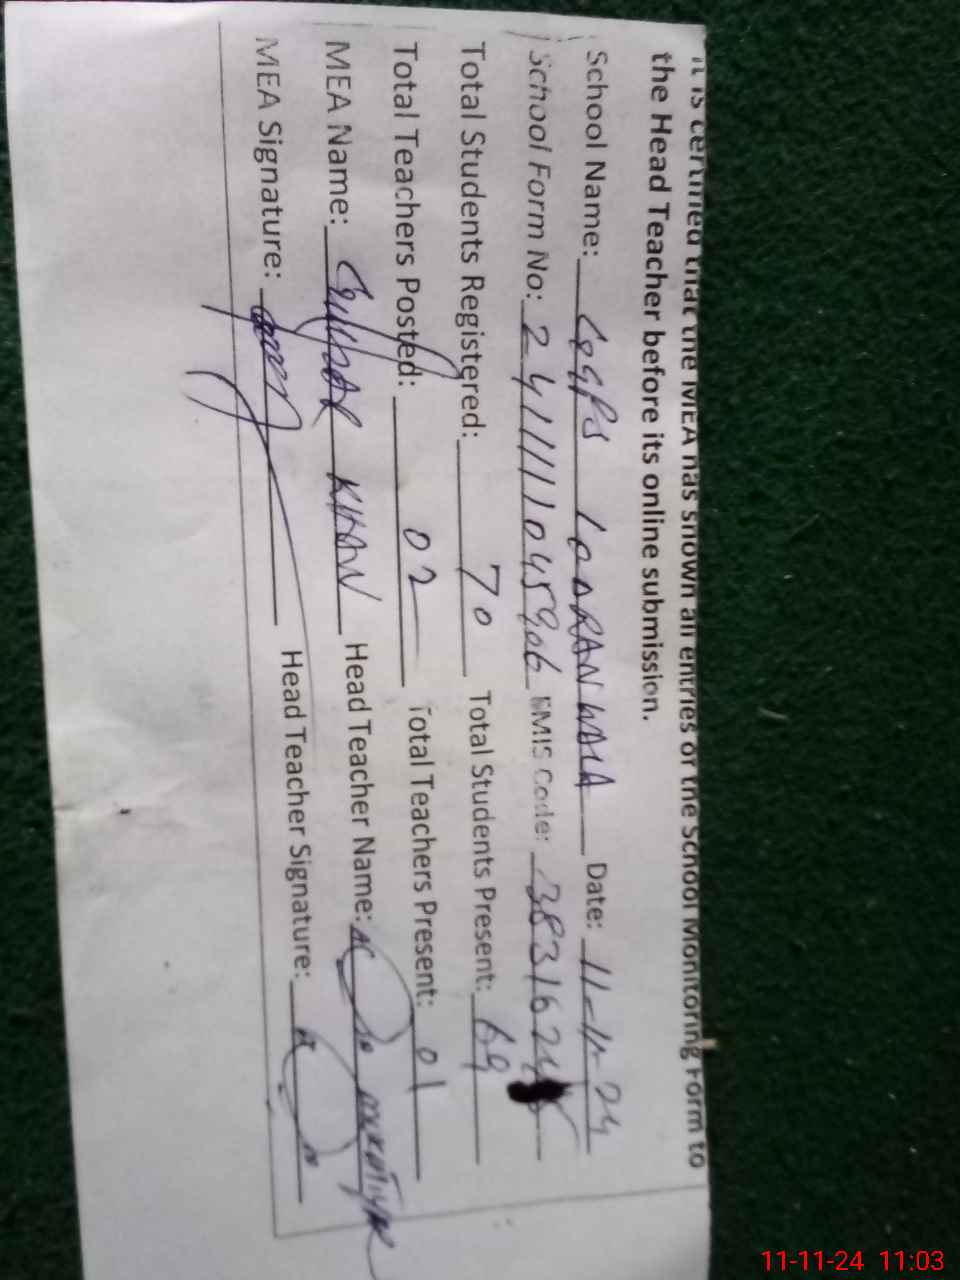 It is certified that the MEA has shown all entries of the School Monitoring Form to
the Head Teacher before its online submission.
School Name: GGPS LOARAN WALA Date: 11-11-24
School Form No: 2411111045906 EMIS Code: 3831624
Total Students Registered: 70 Total Students Present: 69
Total Teachers Posted: 02 Total Teachers Present: 01
MEA Name: KHAN Head Teacher Name:
MEA Signature: Head Teacher Signature:
11-11-24 11:03